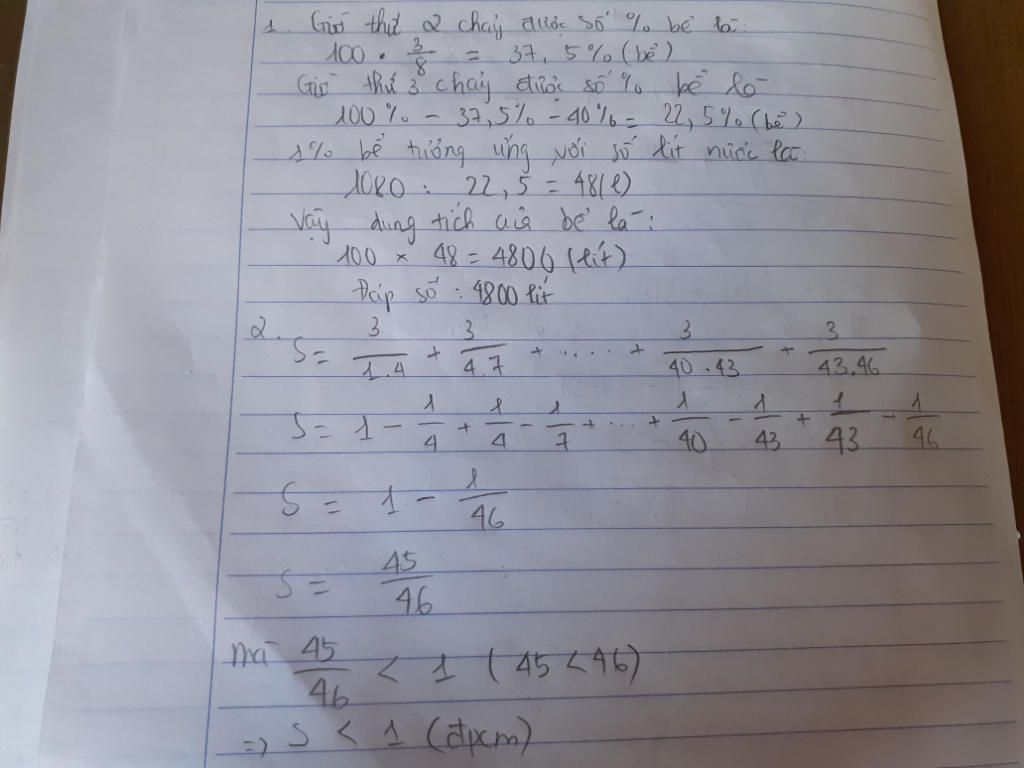 1. Giờ thứ 2 chảy được số % bể là:
100 . 3/8 = 37,5% (bể)
Giờ thứ 3 chảy được số % bể là
100% - 37,5% - 40% = 22,5% (bể)
1% bể tương ứng với số lít nước là:
1080 : 22,5 = 48(l)
Vậy dung tích của bể là:
100 × 48 = 4800 (lít)
Đáp số : 4800 lít
2. S = 3/1.4 + 3/4.7 + ..... + 3/40.43 + 3/43.46
S = 1 - 1/4 + 1/4 - 1/7 + ... + 1/40 - 1/43 + 1/43 - 1/46
S = 1 - 1/46
S = 45/46
mà 45/46 < 1 ( 45 < 46)
=> S < 1 (đpcm)